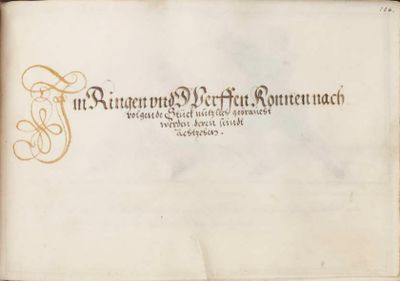 126.
Im Ringen vnd Werffen Konnen nach
volgende Stuck nutzlich gebraucht
werden deren sindt
achtzehen.